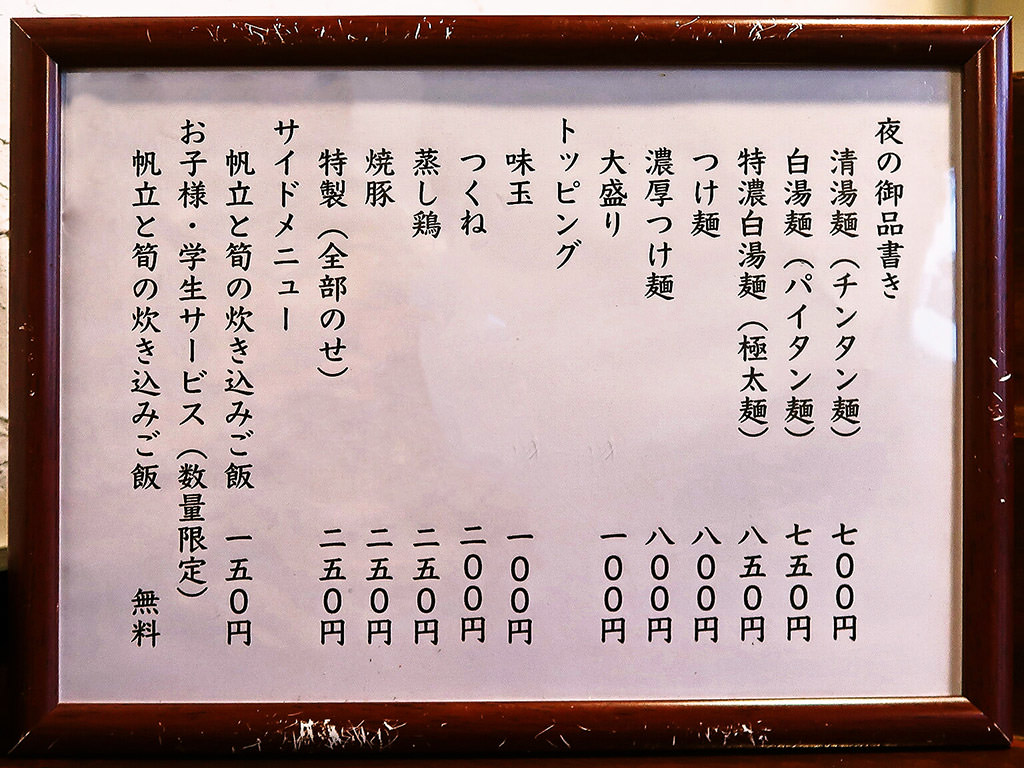 夜の御品書き
清湯麺（チンタン麺） 七００円
白湯麺（パイタン麺） 七五０円
特濃白湯麺（極太麺） 八五０円
つけ麺 八００円
濃厚つけ麺 八００円
大盛り 一００円
トッピング
味玉 一００円
つくね 二００円
蒸し鶏 二五０円
焼豚 二五０円
特製（全部のせ） 二五０円
サイドメニュー
帆立と筍の炊き込みご飯 一五０円
お子様・学生サービス（数量限定）
帆立と筍の炊き込みご飯 無料